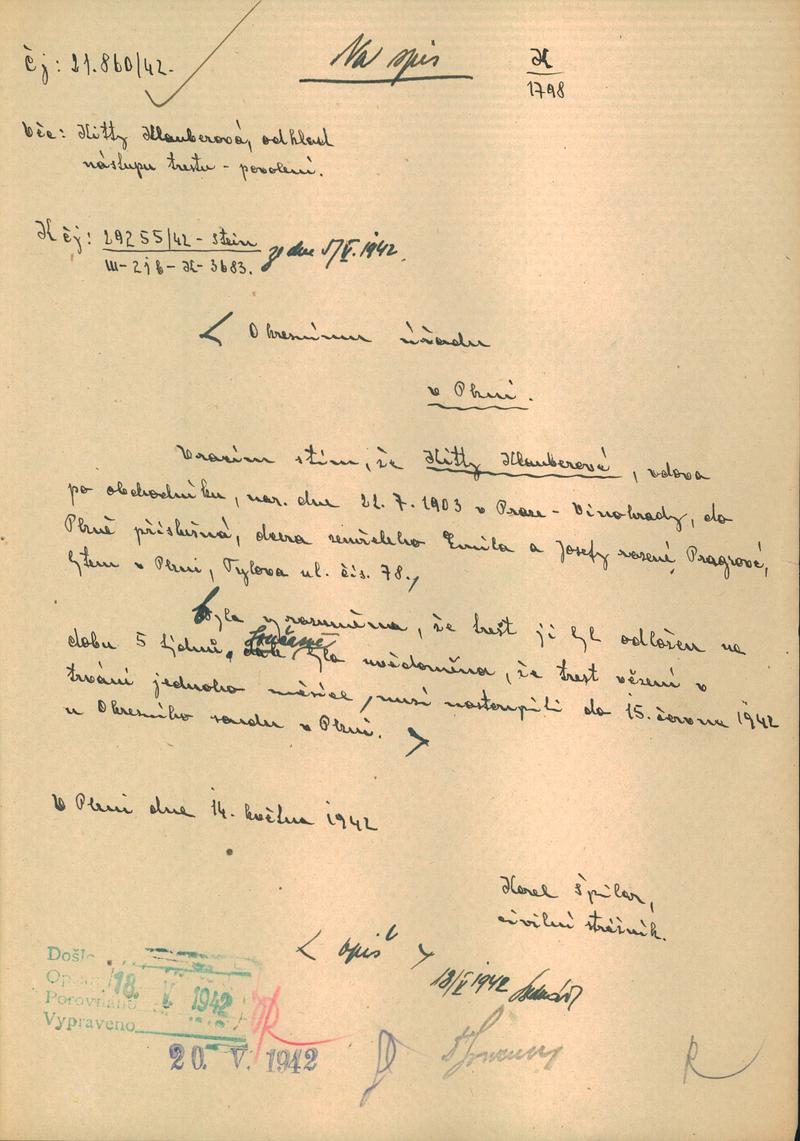 čj: 21.860/42.
Na spis
K
1798
Věc: Kitty Klauberová, odklad
nástupu trestu - povolení.
K čj: 29255/42 - Stein ze dne 5/V. 1942.
III - 2jb - K - 3683.
< Okresnímu úřadu
v Plzni.
Vracím s tím, že Kitty Klauberová, vdova
po obchodníku, nar. dne 22.7.1903 v Praze - Vinohrady, do
Plzně příslušná, dcera zemřelého Emila a Josefy rozené Pragrové,
bytem v Plzni, Tylova ul. čís. 78.,
Byla vyrozuměna, že trest jí byl odložen na
dobu 5 týdnů. Současně byla uvědoměna, že trest vězení v
trvání jednoho měsíce, musí nastoupiti do 15. června 1942
u Okresního soudu v Plzni. >
V Plzni dne 14. května 1942
Karel Špilar,
civilní strážník.
< opiš >
18/V 1942
Došlo
18. V 1942
Porovnáno
Vypraveno
20. V. 1942